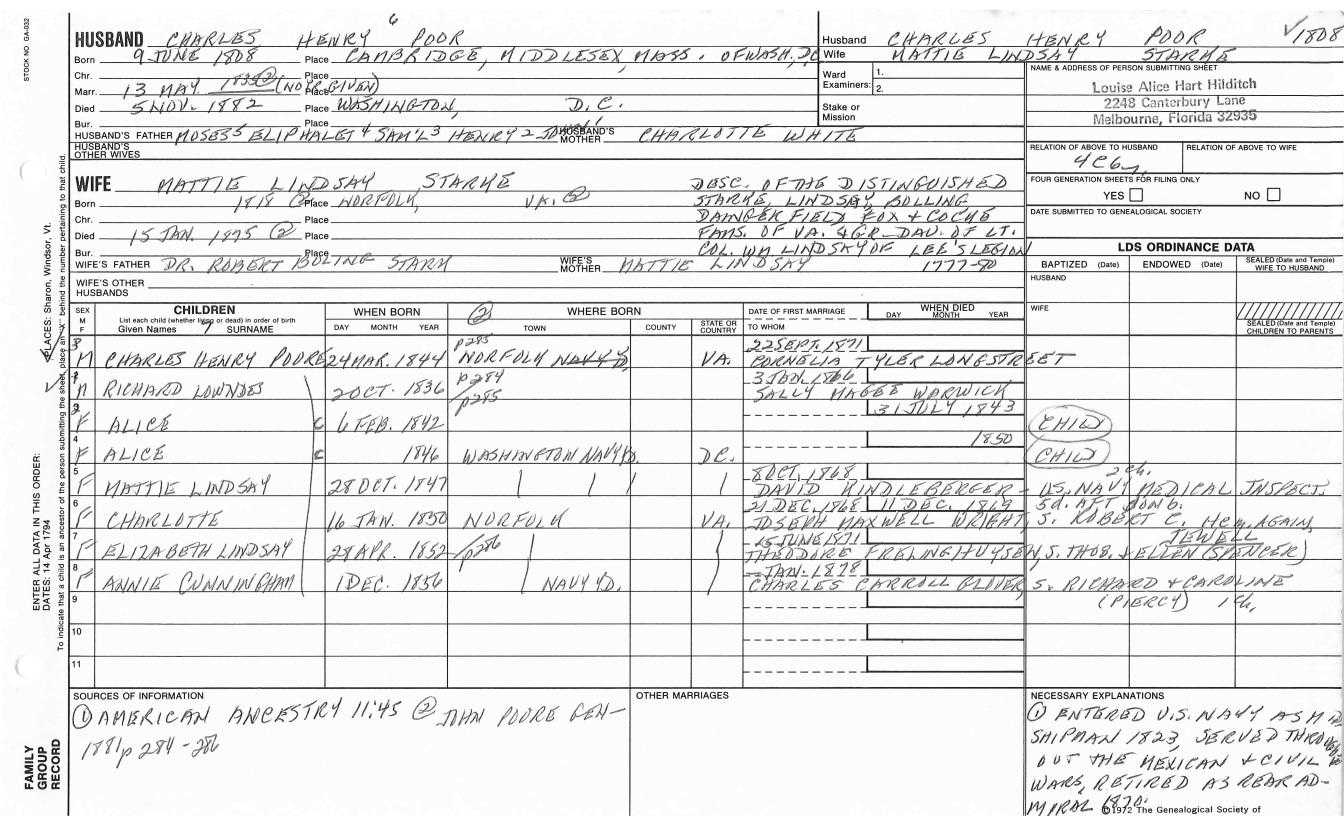 6
STOCK NO. GA-032
HUSBAND CHARLES HENRY POOR
Born 9 JUNE 1808 Place CAMBRIDGE, MIDDLESEX, MASS. OF WASH, DC
Chr. Place
Marr. 13 MAY 1835 ② (NOT GIVEN) Place
Died 5 NOV. 1882 Place WASHINGTON, D.C.
Bur. Place
HUSBAND'S FATHER MOSES5 ELIPHALET4 SAM'L3 HENRY2 JOHN1 HUSBAND'S MOTHER CHARLOTTE WHITE
HUSBAND'S OTHER WIVES
Husband CHARLES HENRY POOR ✓1808
Wife MATTIE LINDSAY STARKE
Ward Examiners: 1.
2.
Stake or Mission
NAME & ADDRESS OF PERSON SUBMITTING SHEET
Louise Alice Hart Hilditch
2248 Canterbury Lane
Melbourne, Florida 32935
RELATION OF ABOVE TO HUSBAND RELATION OF ABOVE TO WIFE
4C6
FOUR GENERATION SHEETS FOR FILING ONLY
YES NO
DATE SUBMITTED TO GENEALOGICAL SOCIETY
WIFE MATTIE LINDSAY STARKE
Born 1818 ② Place NORFOLK, VA. ②
Chr. Place
Died 15 JAN. 1875 ② Place
Bur. Place
WIFE'S FATHER DR. ROBERT BOLING STARK WIFE'S MOTHER MATTIE LINDSAY
WIFE'S OTHER HUSBANDS
DESC. OF THE DISTINGUISHED
STARKE, LINDSAY, BOLLING
DAINGERFIELD FOX + COCKE
FAMS. OF VA. & GR. DAU. OF LT.
COL. WM LINDSAY OF LEE'S LEGION
1777-80
LDS ORDINANCE DATA
BAPTIZED (Date) ENDOWED (Date) SEALED (Date and Temple) WIFE TO HUSBAND
HUSBAND
WIFE
SEALED (Date and Temple) CHILDREN TO PARENTS
SEX M F
CHILDREN
List each child (whether living or dead) in order of birth
Given Names SURNAME
WHEN BORN
DAY MONTH YEAR
② WHERE BORN
TOWN COUNTY STATE OR COUNTRY
DATE OF FIRST MARRIAGE
TO WHOM
WHEN DIED
DAY MONTH YEAR
M CHARLES HENRY POORE 24 MAR. 1844 p285 NORFOLK NAVY YD, VA. 22 SEPT. 1871 CORNELIA TYLER LONGSTREET
M RICHARD LOWNDES 2 OCT. 1836 p284 p285 3 JAN. 1866 SALLY MAGEE WARWICK
F ALICE C 6 FEB. 1842 31 JULY 1843 CHILD
4 F ALICE C 1846 WASHINGTON NAVY YD. DC. 1850 CHILD
5 F MATTIE LINDSAY 28 OCT. 1847 8 OCT. 1868 DAVID KINDLEBERGER - US. NAVY MEDICAL INSPECT. 2 ch.
6 F CHARLOTTE 16 JAN. 1850 NORFOLK VA. 21 DEC. 1868 11 DEC. 1869 5d. AFT. JOSEPH MAXWELL WRIGHT, S. ROBERT C. He m. AGAIN,
7 F ELIZABETH LINDSAY 28 APR. 1852 p286 15 JUNE 1871 THEODORE FRELINGHUYSEN, S. THOS. + ELLEN (SPENCER) JEWELL
8 F ANNIE CUNNINGHAM 1 DEC. 1856 NAVY YD. - JAN. 1878 CHARLES CARROLL GLOVER, S. RICHARD + CAROLINE
(PIERCY) 1 Ch,
9
10
11
SOURCES OF INFORMATION
① AMERICAN ANCESTRY 11:45 ② JOHN POORE GEN-
1881 p 284-286
OTHER MARRIAGES
NECESSARY EXPLANATIONS
① ENTERED U.S. NAVY AS MID
SHIPMAN 1823, SERVED THROUGH
OUT THE MEXICAN + CIVIL
WARS, RETIRED AS REAR AD-
MIRAL 1870.
©1972 The Genealogical Society of
PLACES: Sharon, Windsor, Vt.
ENTER ALL DATA IN THIS ORDER:
DATES: 14 Apr 1794
To indicate that a child is an ancestor of the person submitting the sheet, place an "X" behind the number pertaining to that child.
FAMILY GROUP RECORD